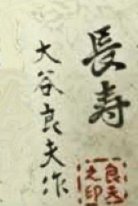 長寿
大谷良夫作
良夫之印